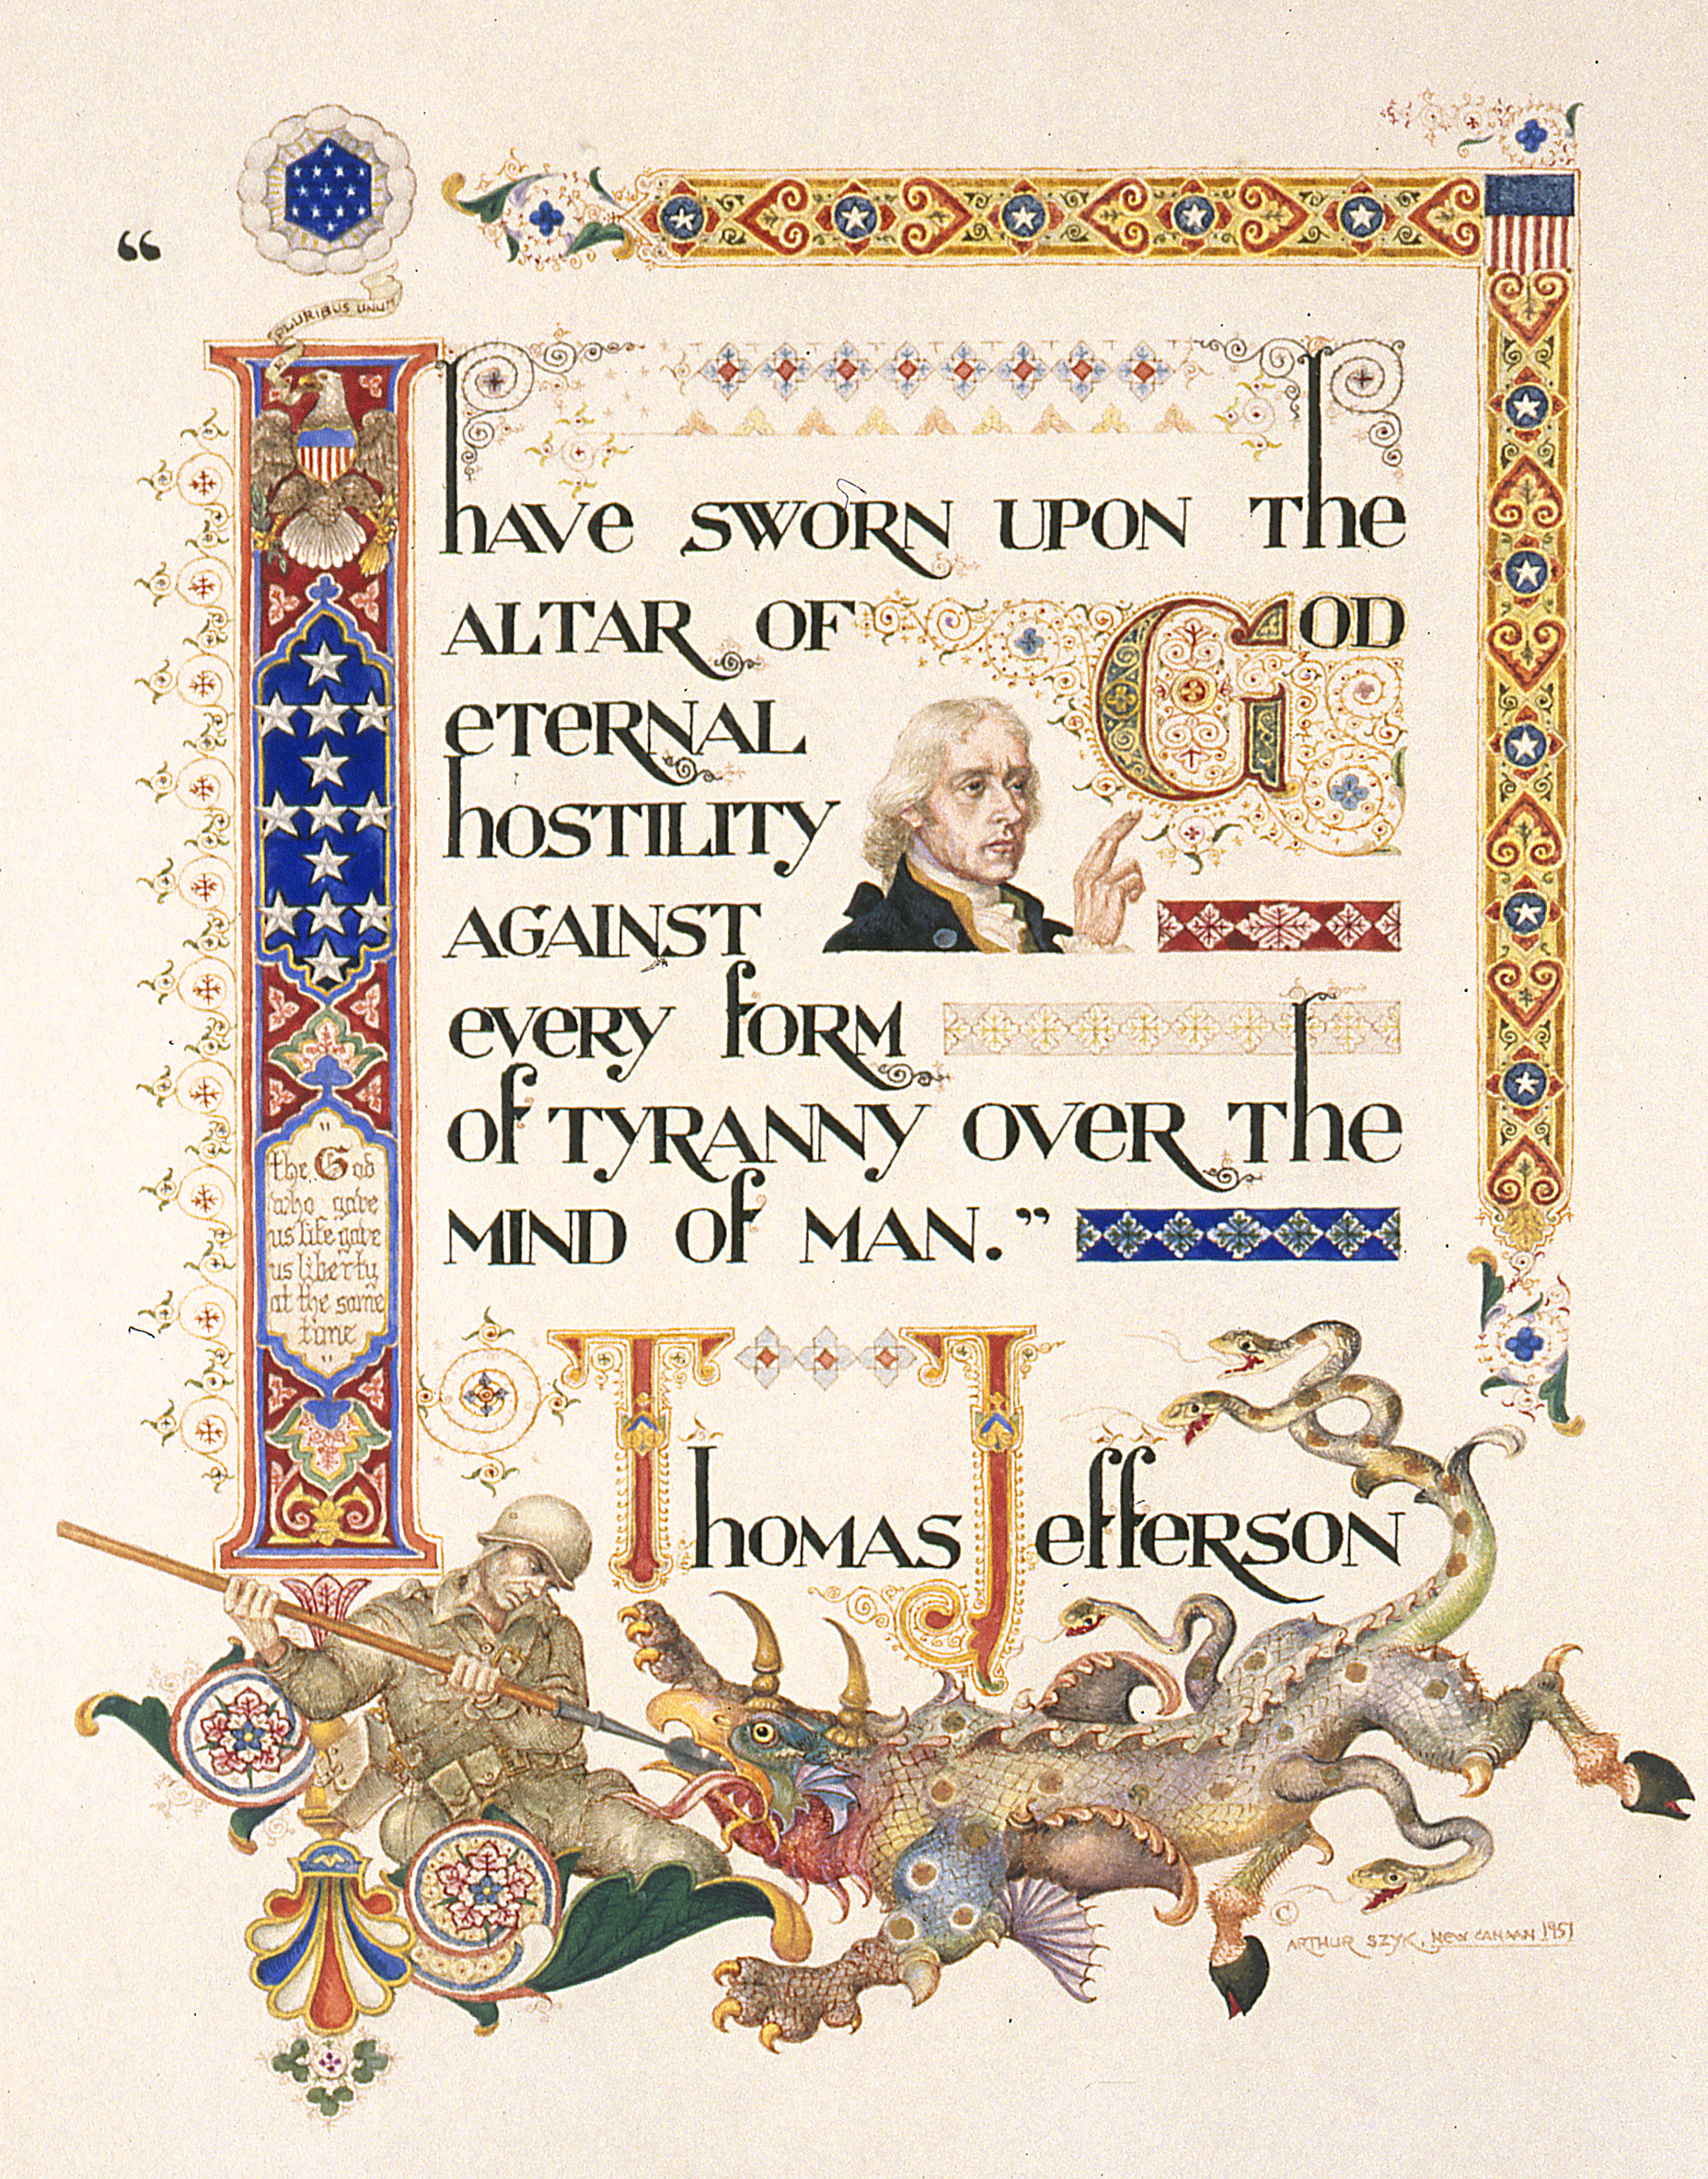 “
PLURIBUS UNUM
I have SWORN UPON The
ALTAR OF GOD
eTeRNAL
hOSTILITY
AGAINST
eveRY fORM
Of TYRANNY OveR The
MIND Of MAN.”
"
the God
who gave
us life gave
us liberty
at the same
time
"
ThOMAS JeffeRSON
©
ARTHUR SZYK, NEW CANAAN 1951